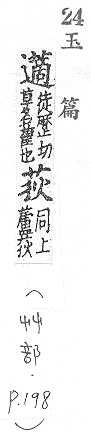 24 玉篇
藡 徒歷切 草名雚也 荻 同上 蘆荻 (艸部. P.198)